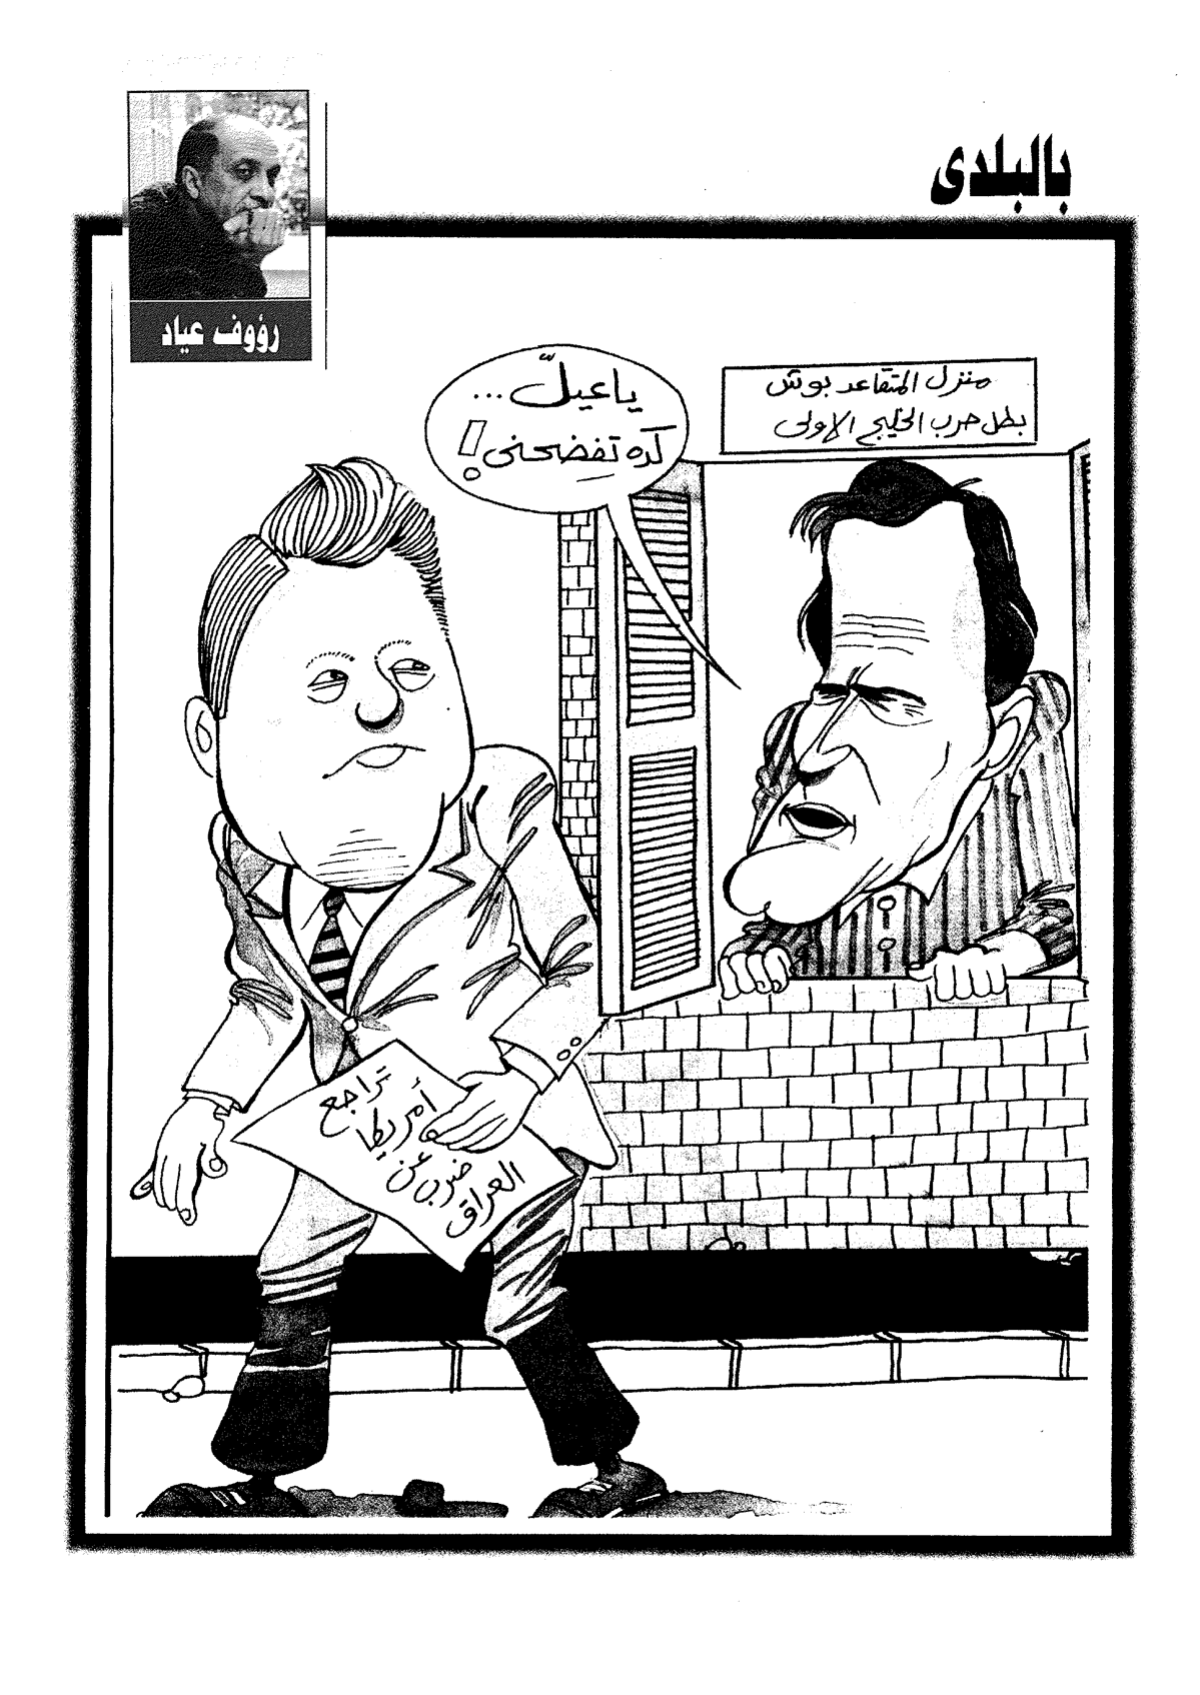 بالبلدى
رؤوف عياد
منزل المتقاعد بوش
بطل حرب الخليج الاولى
ياعيلّ...
كده تفضحنى!
تراجع
أمريكا
عن ضرب
العراق